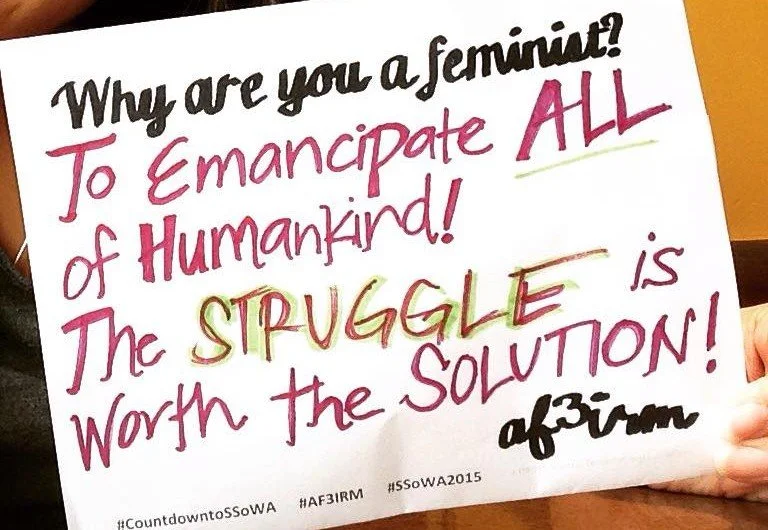 Why are you a feminist?
To Emancipate ALL
of Humankind!
The STRUGGLE is
Worth the SOLUTION!
af3irm
#CountdowntoSSoWA #AF3IRM #SSoWA2015